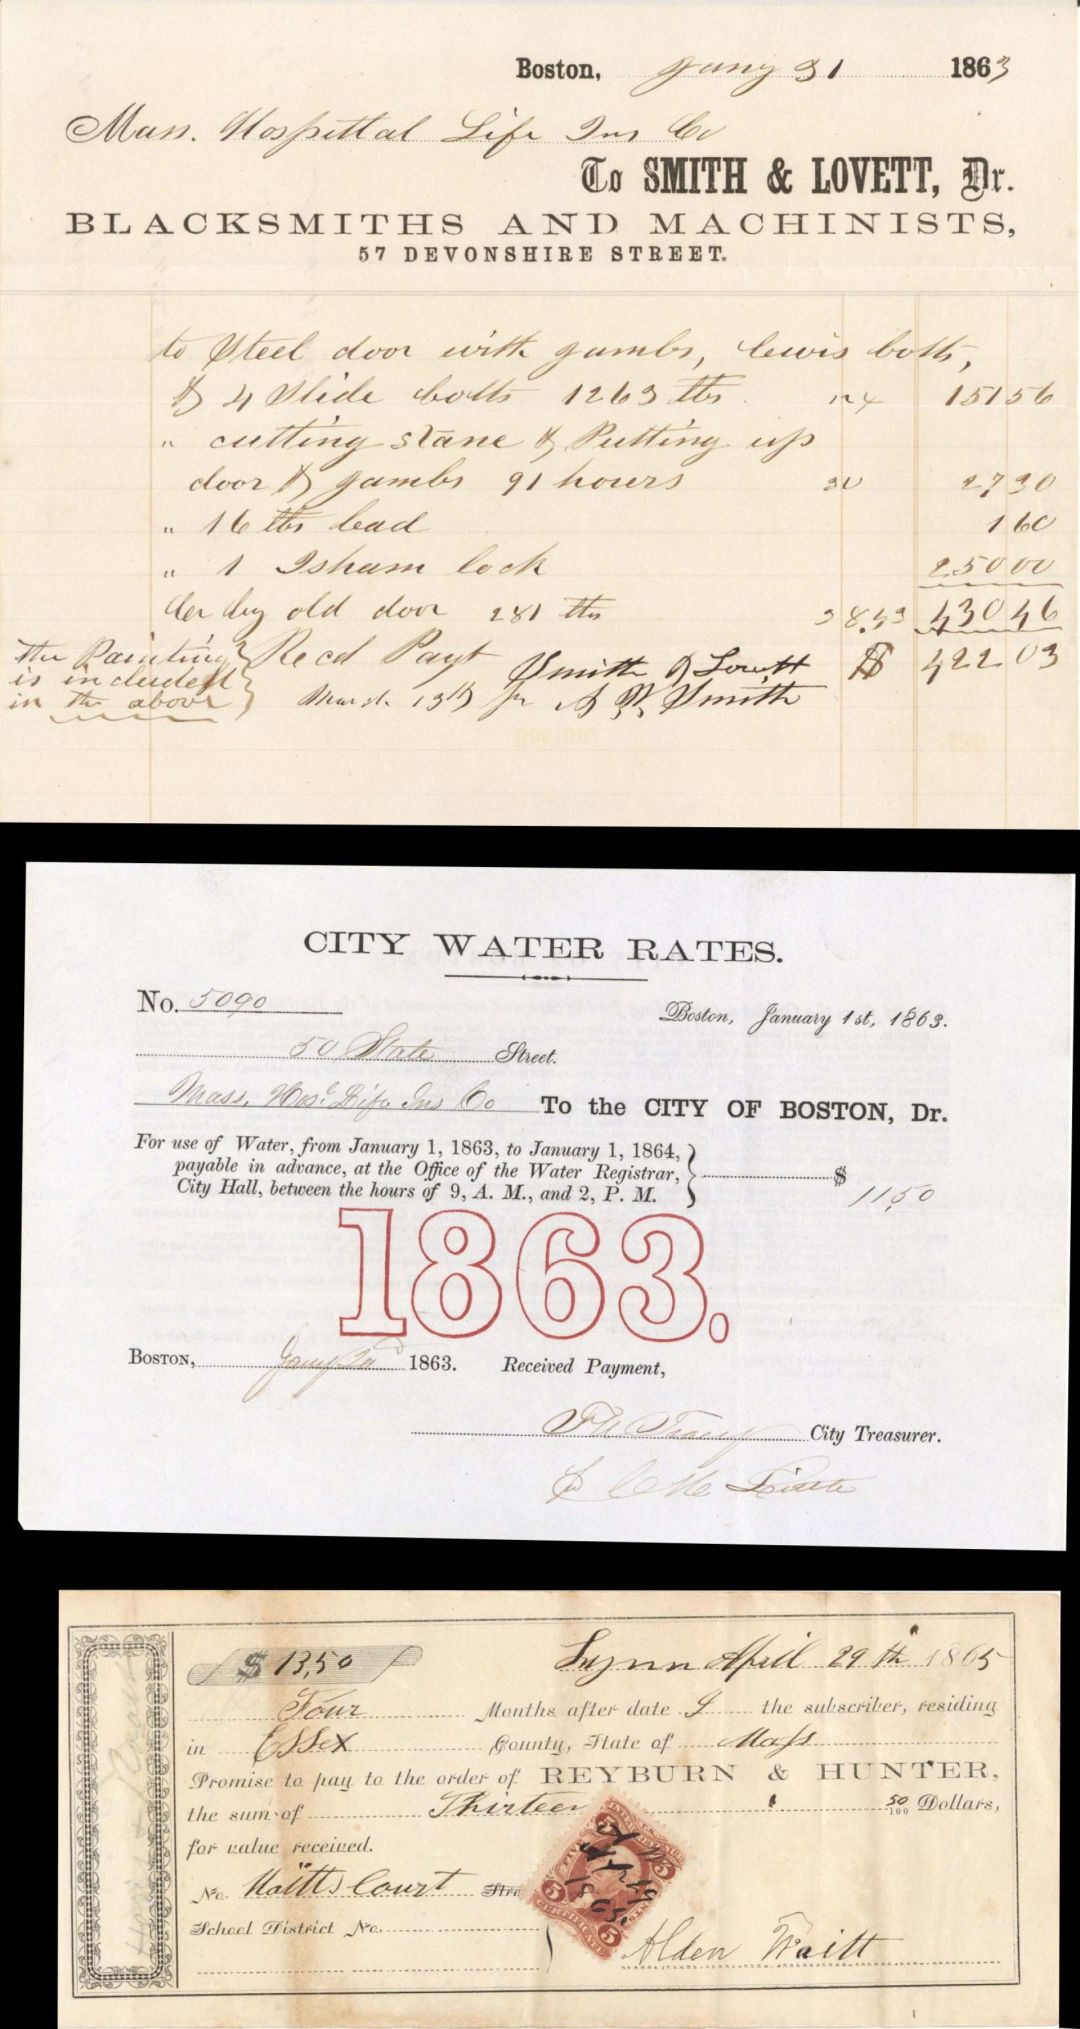 Boston, Jany 31 1863
Mass. Hospittal Life Ins Co
To SMITH & LOVETT, Dr.
BLACKSMITHS AND MACHINISTS,
57 DEVONSHIRE STREET.
to Steel door with gambs, lewis bolts,
& 4 Slide bolts 1263 lbs 12 151 56
" cutting stone & Putting up
door & gambs 91 hours 30 27 30
" 16 lbs lead 1 60
" 1 Isham lock 250 00
by old door 281 lbs 3 8.43 430 46
the Painting Recd Payt Smith & Lovett $ 422 03
is included
in the above March 13th for Smith
CITY WATER RATES.
No. 5090
Boston, January 1st, 1863.
50 State Street.
Mass. Hosl Life Ins Co To the CITY OF BOSTON, Dr.
For use of Water, from January 1, 1863, to January 1, 1864,
payable in advance, at the Office of the Water Registrar, $
City Hall, between the hours of 9, A. M., and 2, P. M. 11.50
1863.
BOSTON, Jany 2d 1863. Received Payment,
F U Tracy City Treasurer.
$ 13,50 Lynn April 29th 1865
Four Months after date I the subscriber, residing
in Essex County, State of Mass
Promise to pay to the order of REYBURN & HUNTER,
the sum of Thirteen 50/100 Dollars,
for value received.
No. Waitts Court Stre
School District No.
Alden Waitt
5
A W
Apr 29
1865.
CERTIFICATE